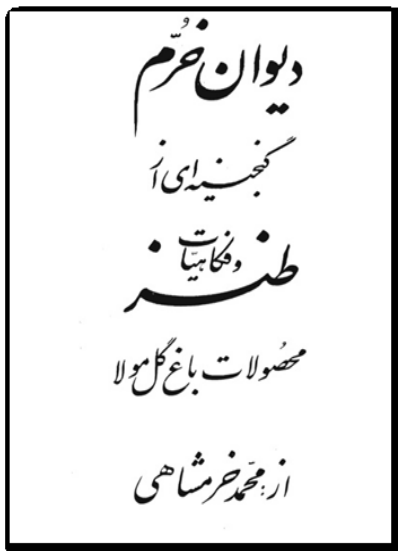 دیوان خُرّم
گنجینه ای از
طنز و فکاهیّات
محصُولات باغ گل مولا
از: محمّد خرمشاهی